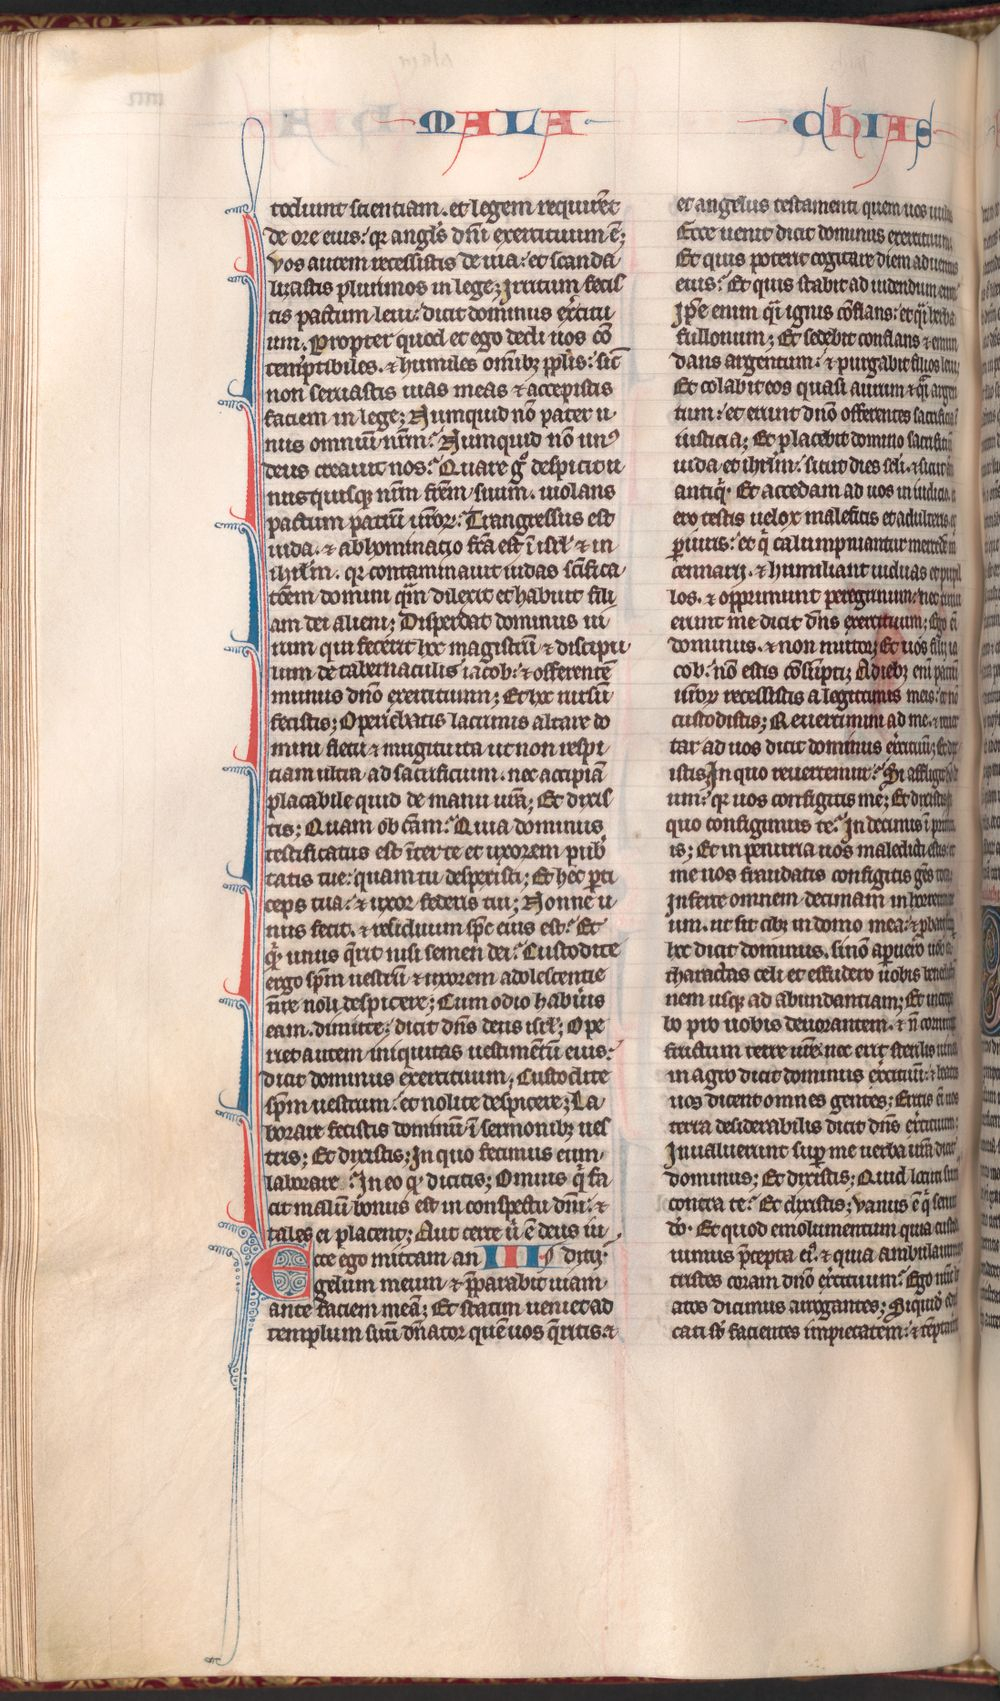 MALA
CHIAS
todiunt scientiam. et legem requirēt
de ore eius: qr angl's dn̄i exercituum ē;
Vos autem recessistis de uia: et scanda
lizastis plurimos in lege; Irritum fecis
tis pactum leui: dicit dominus exc̄itu
um. Propter quod et ego dedi uos cō
temptibiles. ⁊ humiles omībꝫ pplis: sic̄
non seruastis uias meas ⁊ accepistis
faciem in lege; Numquid nō pater u
nus omniū nr̄m? Numquid nō un⁹
deus creauit nos? Quare gͦ despicit u
nusquisqꝫ nr̄m frēm suum. uiolans
pactum patrū nr̄orꝝ? Trangressus est
iuda. ⁊ abhominatio fc̄a est ī isrl' ⁊ in
ihrlm̄. qr contaminauit iudas sc̄ifica
tōem domini quā dilexit et habuit fili
am dei alieni; Disperdat dominus ui
rum qui fecerit hoc magistrū ⁊ discipu
lum de tabernaculis iacob: ⁊ offerentē
munus dn̄o exercituum; Et hoc rursū
fecistis; Operiebatis lacrimis altare do
mini fletu ⁊ mugitu ita ut non respi
ciam ultra ad sacrificium. nec accipiā
placabile quid de manu ur̄a; Et dixis
tis; Quam ob cām? Quia dominus
testificatus est īter te et uxorem pub̄
tatis tue: quam tu despexisti; Et hec p̄ti
ceps tua: ⁊ uxor federis tui; Nonne u
nus fecit. ⁊ residuum sp̄c eius est? Et
qͥd unus q̄rit nisi semen dei? Custodite
ergo sp̄m uestrū ⁊ uxorem adolescentie
tue noli despicere; Cum odio habūis
eam. dimitte: dicit dn̄s deus isrl'; Ope
riet autem iniquitas uestimētū eius:
dicit dominus exercituum; Custodite
sp̄m uestrum: et nolite despicere; La
borare fecistis dominū ī sermonibꝫ ues
tris; Et dixistis; In quo fecimus eum
laborare? In eo qͦ dicitis; Omnis qͥ fa
cit malū bonus est in conspectu dn̄i: ⁊
tales ei placent; Aut certe uͥ ē deus iu
Ecce ego mittam an III dicii
gelum meum ⁊ p̄parabit uiam
ante faciem meā; Et statim ueniet ad
templum suū dn̄ator quē uos q̄ritis. ⁊
et angelus testamenti quem uos
Ecce uenit dicit dominus exercituum
Et quis poterit cogitare diem aduentus
eius? Et quis stabit ad uidendum eum
Ip̄e enim qͣi ignis cōflans: et qͣi herba
fullonum; Et sedebit conflans ⁊ emun
dans argentum: ⁊ purgabit filios leui
Et colabit eos quasi aurum ⁊ qͣi argen
tum: et erunt dn̄o offerentes sacrificia
iusticia; Et placebit domino sacrificiū
iuda et ihrlm̄: sicut dies sc̄li. ⁊ sicut
antiqͥ. Et accedam ad uos in iudicio.
ero testis uelox maleficis et adulteris. et
p̄iuris: et qͥ calumpniantur mercedē
cennarij. ⁊ humiliant uiduas et pupil
los. ⁊ opprimunt peregrinum: nec timu
erunt me dicit dn̄s exercituum; Ego eī
dominus. ⁊ non mutor; Et uos filij ia
cob: nō estis cōsūpti; A diebꝫ enī patrū
ur̄orꝝ recessistis a legitimis meis: et nō
custodistis; Reuertimini ad me. ⁊ reuer
tar ad uos dicit dominus exc̄ituū; Et dix
istis In quo reuertemur? Si affliget
um? qr uos configitis me; Et dixistis
quo configimus te? In decimis ī primi
is; Et in penuria uos maledicti estis: et
me uos fraudatis configitis gēs tota
Inferte omnem decimam in horreum
um. ut sit cibꝫ in domo mea: ⁊ p̄bate
hoc dicit dominus. si nō ap̄uero uob
tharactas celi et effudero uobis benedictō
nem usqꝫ ad abundantiam; Et increpa
bo pro uobis deuorantem. ⁊ nō corrum
fructum terre ur̄e. nec erit sterilis uinea
in agro dicit dominus exc̄ituum: ⁊ beatos
uos dicent omnes gentes; Eritis eī uos
terra desiderabilis dicit dn̄s exc̄ituum:
Inualuerunt sup̄ me uerba ur̄a dicit
dominus; Et dixistis; Quid locuti sum
contra te? Et dixistis; Vanus ē qͥ seruit
dō. Et quod emolumentum quia custo
uimus p̄cepta ei⁹. ⁊ quia ambulauimus
tristes coram dn̄o exc̄ituum? Ergo nūc
atos dicimus arrogantes; Siquid' edi
cati sū facientes impietatem: ⁊ tēptauer